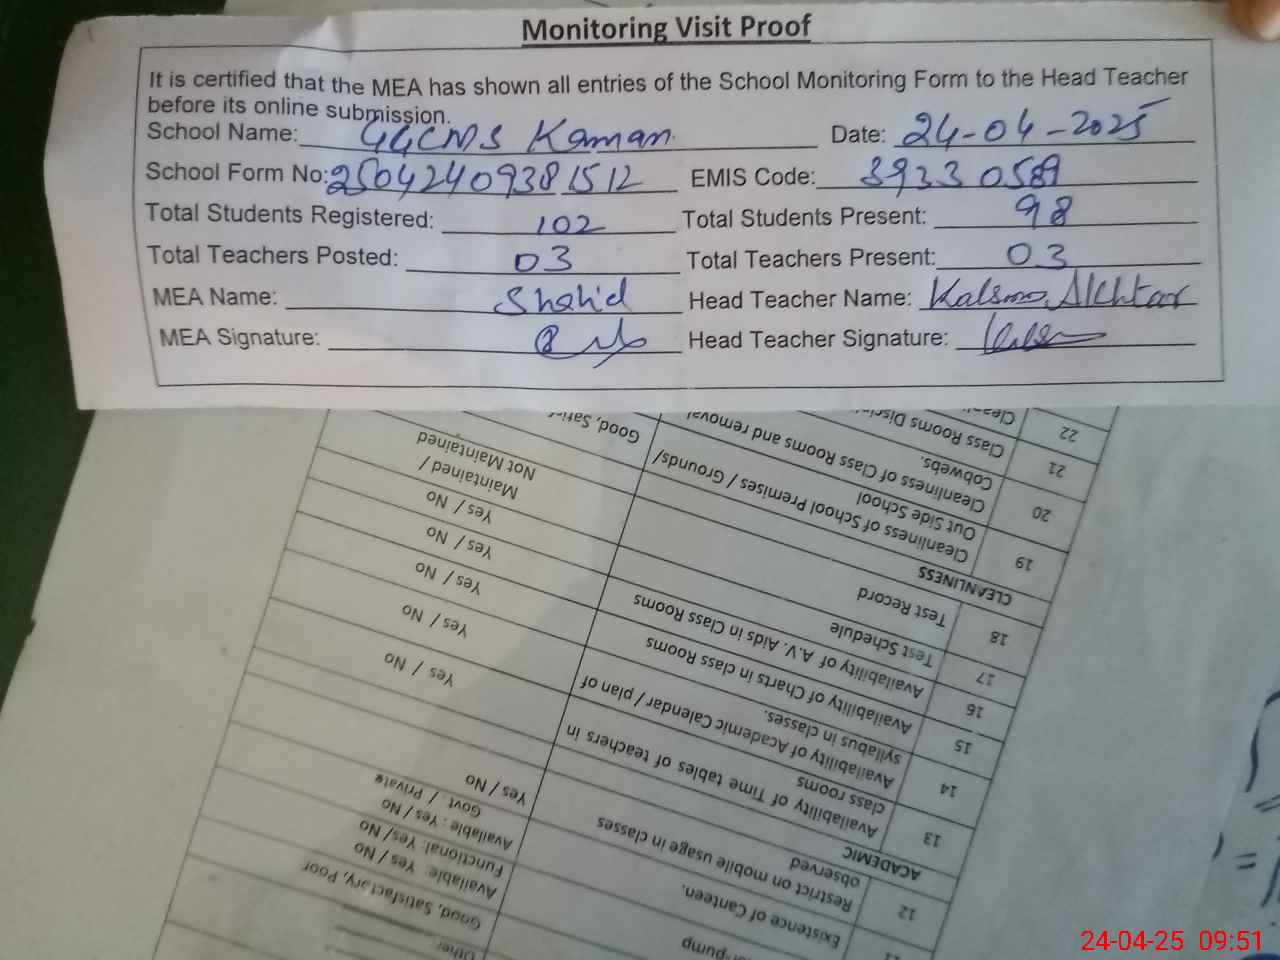 Monitoring Visit Proof
It is certified that the MEA has shown all entries of the School Monitoring Form to the Head Teacher
before its online submission.
School Name: GGCMS Kaman Date: 24-04-2025
School Form No: 25042409381512 EMIS Code: 39330589
Total Students Registered: 102 Total Students Present: 98
Total Teachers Posted: 03 Total Teachers Present: 03
MEA Name: Shahid Head Teacher Name: Kalsoom Akhtar
MEA Signature: Head Teacher Signature:
12 Restrict on mobile usage in classes observed Yes / No
Existence of Canteen. Available : Yes / No Govt. / Private
Functional: Yes/ No
Available: Yes / No
Good, Satisfactory, Poor
Other:
ACADEMIC
13 Availability of Time tables of teachers in class rooms Yes / No
14 Availability of Academic Calendar / plan of syllabus in classes. Yes / No
15 Availability of Charts in class Rooms Yes / No
16 Availability of A.V. Aids in Class Rooms Yes / No
17 Test Schedule Yes / No
18 Test Record Maintained / Not Maintained
CLEANLINESS
19 Cleanliness of School Premises / Grounds/ Out Side School Good,
20 Cleanliness of Class Rooms and removal Cobwebs.
21 Class Rooms
22
24-04-25 09:51